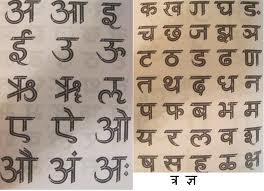 अ आ इ
ई उ ऊ
ऋ ॠ ऌ
ए ऐ ओ
औ अं अः
क ख ग घ ङ
च छ ज झ ञ
ट ठ ड ढ ण
त थ द ध न
प फ ब भ म
य र ल व श
ष स ह ळ क्ष
त्र ज्ञ